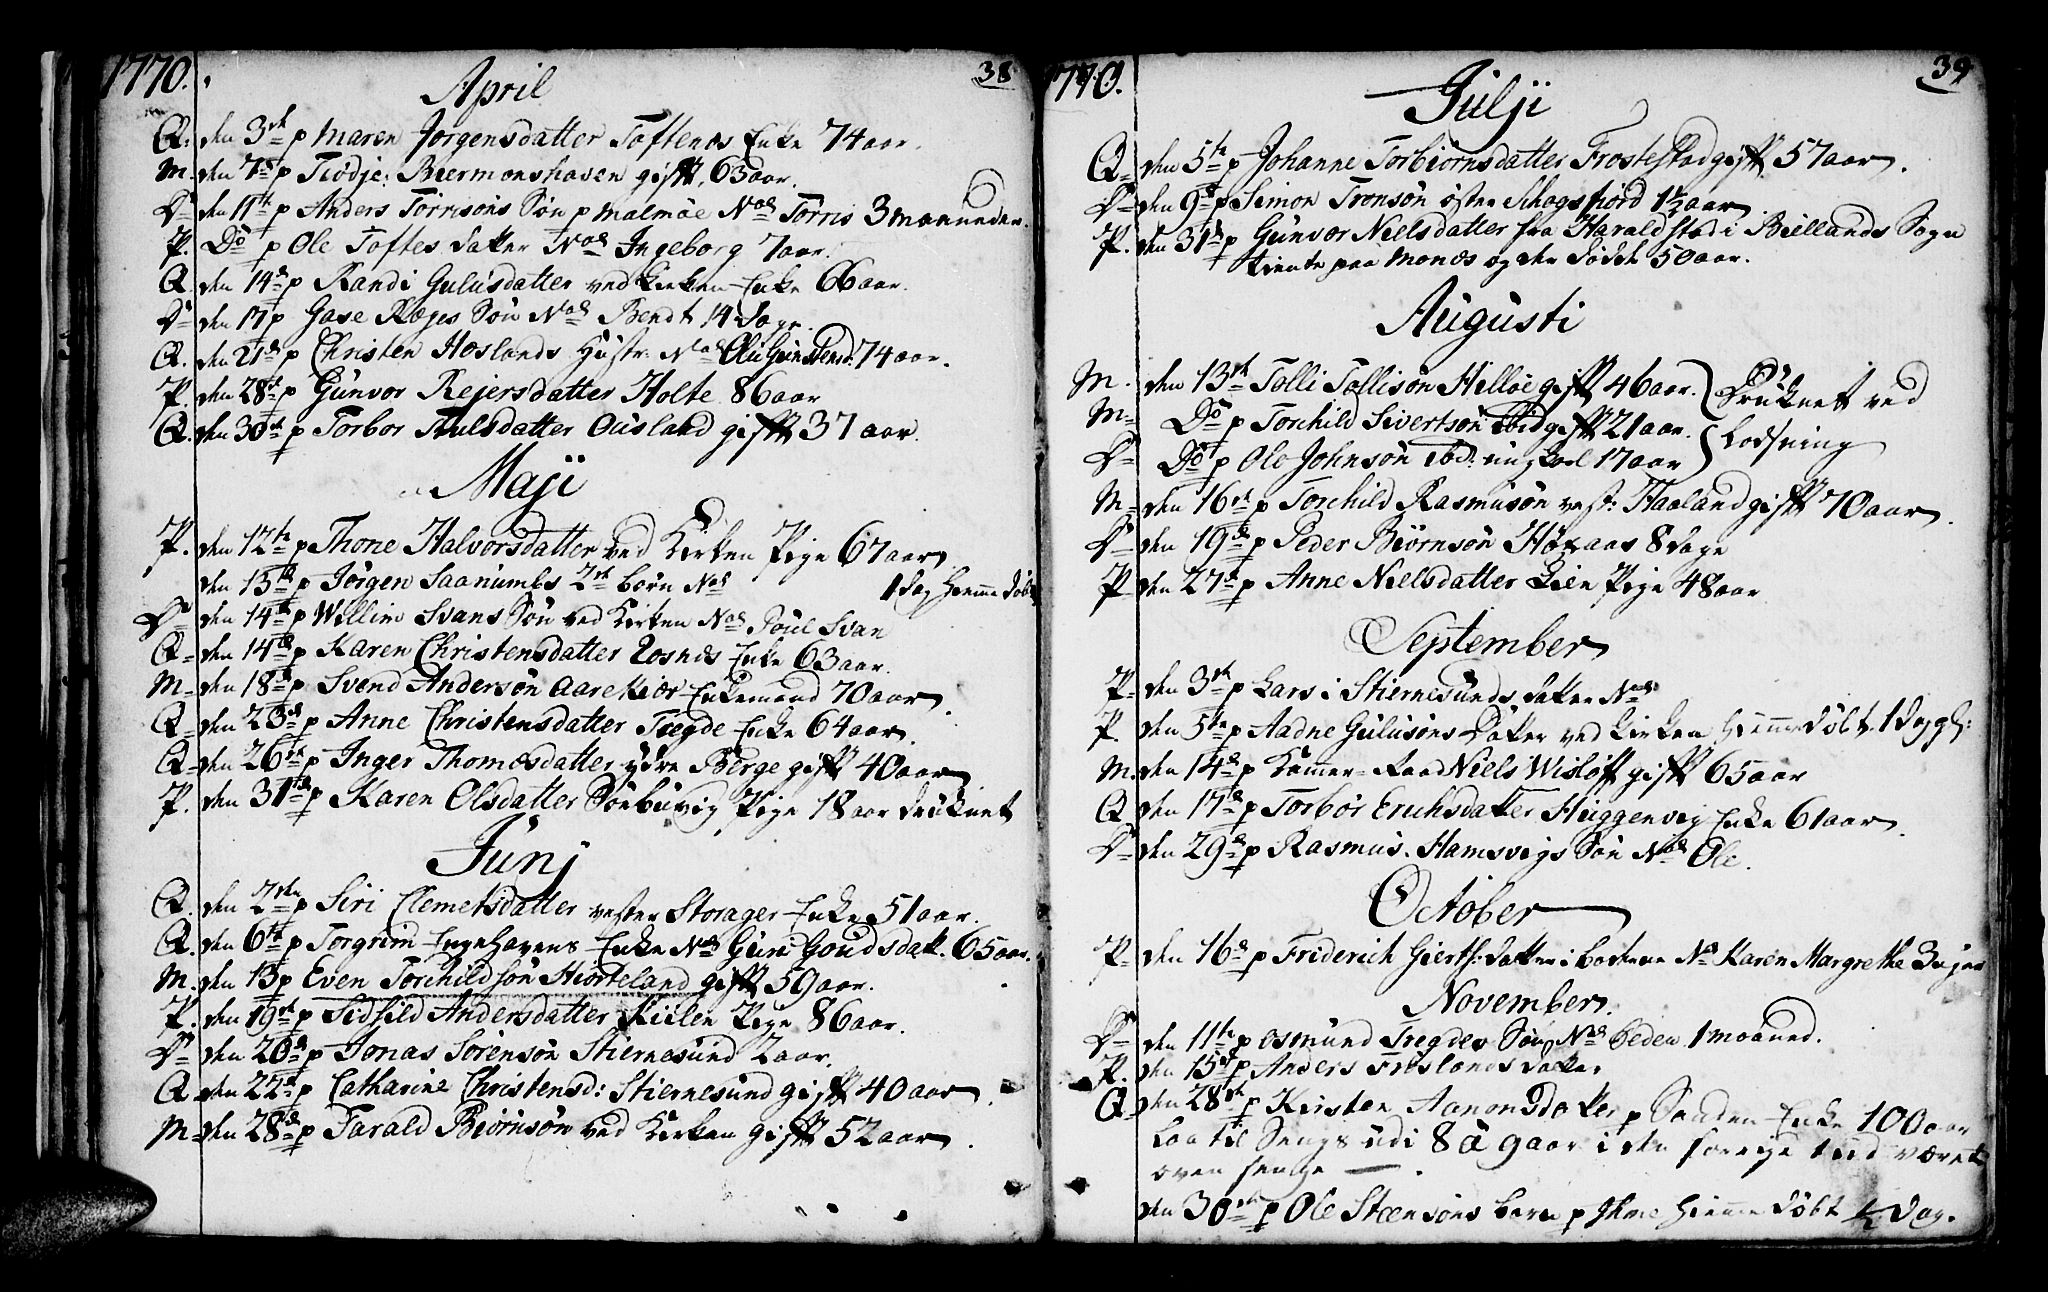 1770. 38
April
Q. den 3die p Maren Jørgensdatter Toftenes Enke 74 aar.
M. den 7de p Tiødje: Biermonshaven gift. 63 aar.
D= den 11te p Anders Torrisøns Søn p Malmøe Nod Torris 3 Maaneder.
P. Do p Ole Toftes datter Nod Ingeborg 7 aar.
Q. den 14de p Randi Gulusdatter ved Kirken Enke 66 aar.
D= den 17 p Gase Søn Nod Bendt 14 dage.
Q. den 21de p Christen Hoslands Hustr: Nod 74 aar.
P. den 28de p Gunvor Rejersdatter Holte 86 aar
Q. den 30te p Torbor Datter Ousland gift 37 aar.
Maji
P. den 12te p Thone Halvorsdatter ved Kirken Pige 67 aar
den 13de p Jørgen Saanumbs 2de børn Nod 1 dag hiemme døbt
D= den 14de p Willim Svans Søn ved Kirken Nod Poul Svan
Q= den 14de p Karen Christensdatter Rosnes Enke 63 aar.
M= den 18de p Svend Andersøn Aarekior Enkemand 70 aar.
Q= den 23de p Anne Christensdatter Tregde Enke 64 aar.
Q= den 26de p Inger Thomæsdatter ydre Berge gift 40 aar
P. den 31de p Karen Olsdatter Sønbuvig Pige 18 aar druknet
Junj
Q. den 2den p Siri Clemetsdatter vester Storager Enke 51 aar.
Q. den 6te p Torgrim Engehavens Enke Nod Guri Goudsdatt. 65 aar.
M. den 13 p Even Torchildsøn Hiorteland gift 59 aar.
P. den 19de p Sidsild Andersdatter Kiile Pige 86 aar.
D= den 20de p Jonas Sørensøn Stiernesund 2 aar.
Q. den 22de p Catharine Christensd: Stiernesund gift 40 aar.
M= den 28de p Tarald Biørnsøn ved Kirken gift 52 aar.
1770. 39
Julji
Q= den 5te p Johanne Torbiørnsdatter Frostestad gift 57 aar.
D= den 9de p Simon Tronsøn øster Schogsfiord 1½ aar
P. den 31de p Gunvor Nielsdatter fra Haraldstad i Biellands Sogn
tiente paa Monæs og der døde 50 aar.
Augusti
M. den 13de p Tolli Tollisøn Hilløe gift 46 aar. Druknet ved
M= Do p Torchild Sivertsøn ibid gift 21 aar. Lodsning
D= Do p Ole Johnsøn ibd: ungkarl 17 aar
M= den 16de p Torchild Rasmusøn vest: Haaland gift 70 aar.
D= den 19de p Peder Biørnsøn 8 dage
P= den 27de p Anne Nielsdatter Lien Pige 48 aar
September
P= den 3die p Lars i Stiernesunds datter Nod
P. den 5te p Aadne Gulusøns Datter ved Kirken hiemme døbt. 1 dag gl:
M= den 14de p Kammer-Raad Niels Wisløff gift 65 aar
Q= den 17de p Torbor Erichsdatter Huggenvig Enke 61 aar.
D= den 29de p Rasmus Hamsvigs Søn Nod Ole.
October
P= den 16de p Friderich Gierts: datter i Nod Karen Margrethe 3 uger
November
D= den 11te p Osmund Tregdes Søn Nod Peder 1 Maaned.
P. den 15de p Anders Frøslands datter
Q= den 28de p Kirsten Aanonsdatter p Sanden Enke 100 aar
laa til Sengs udi 8 à 9 aar i den forrige tiid været
oven senge —
den 30te p Ole Steensøns barn p Ihme hiemme døbt ½ dag.